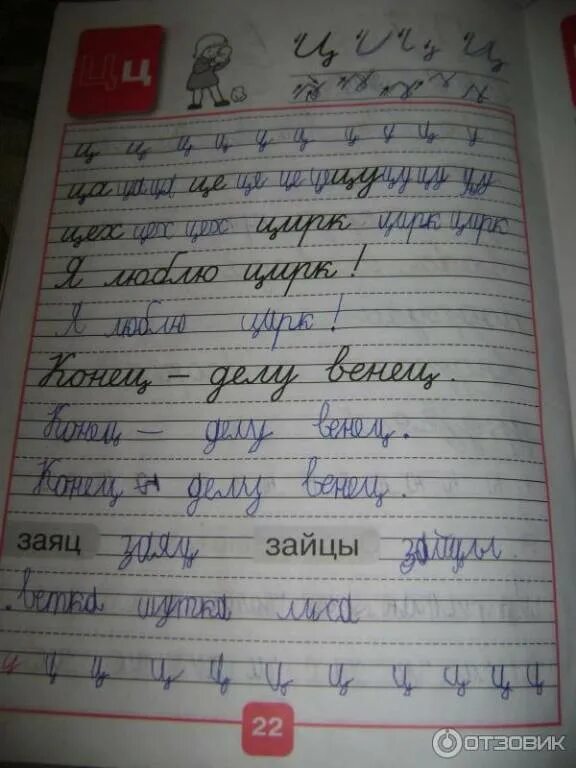 Цц Ц Ц ц Ц
ц ц ц ц ц ц ц ц ц ц
ца ца ца це це це це цу цу цу цу
цех цех цех цирк цирк цирк
Я люблю цирк!
Я люблю цирк!
Конец – делу венец.
Конец – делу венец.
Конец делу венец.
заяц заяц зайцы зайцы
ветка шутка лиса
ц ц ц ц ц ц ц ц ц ц
22
ОТЗОВИК